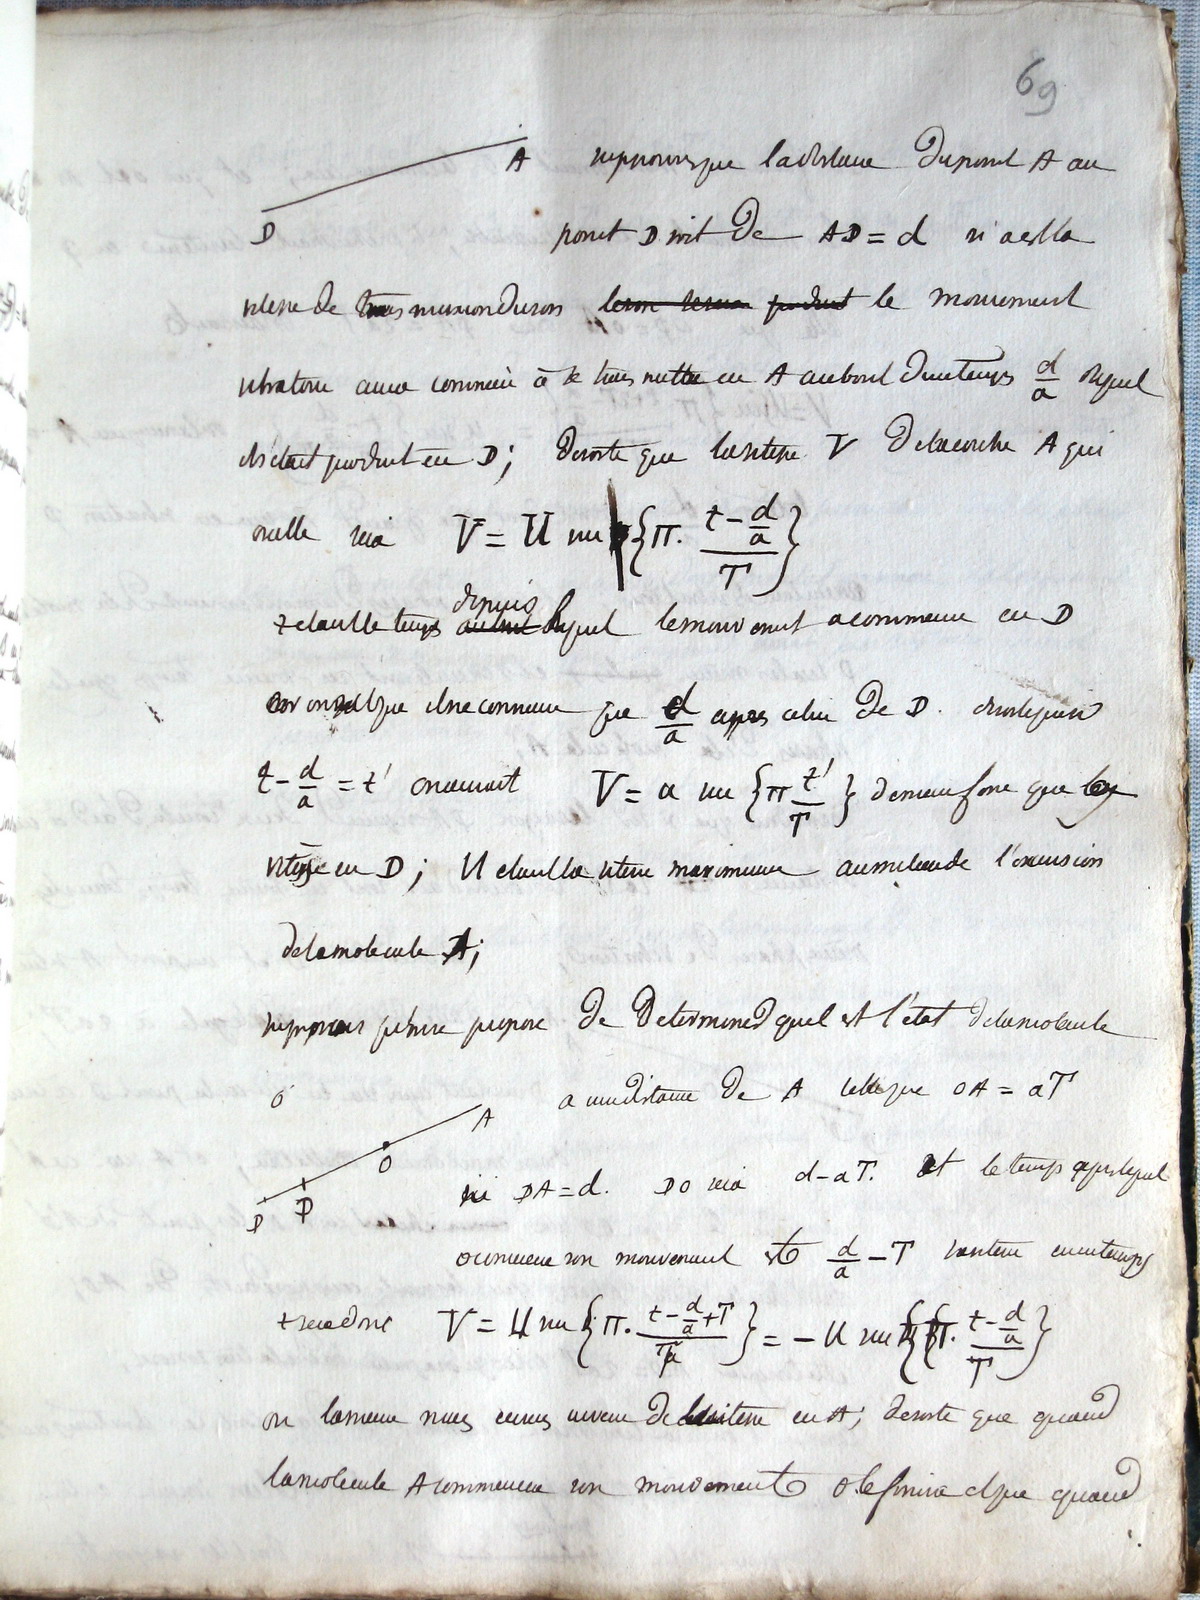 69
A supposons que la distance du point A au
D point D soit de AD = d si a est la
vitesse de transmission du son le son sera produit le mouvement
vibratoire aura commencé à se transmettre en A au bout d'un temps d/a duquel
il s'était produit en D; de sorte que la vitesse V de la couche A qui
oscille sera V = U sin {π. (t - d/a)/T}
t étant le temps depuis lequel le mouvement a commencé en D
on voit que il ne commence que d/a après celui de D.
t - d/a = t' on aurait V = a sin {π t'/T} de meme que
vitesse en D; U étant la vitesse maximum au milieu de l'excursion
de la molecule A;
supposons qu'on se propose de Determiner quel est l'état de la molecule
o a une distance de A telle que OA = aT
A
O
D D
si DA = d. DO sera d - aT. et le temps après lequel
o commence son mouvement est d/a - T sa vitesse en un temps
t sera donc V = U sin {π. (t - d/a + T)/T} = - U sin {π. (t - d/a)/T}
ou la meme mais en sens inverse de la vitesse en A; de sorte que quand
la molécule A commencera son mouvement O le finira et que quand